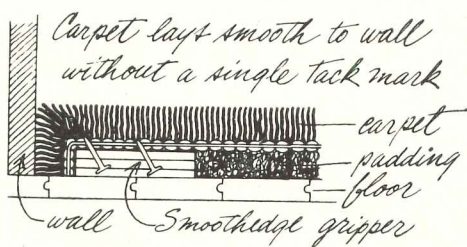 Carpet lays smooth to wall
without a single tack mark
carpet
padding
floor
wall Smoothedge gripper